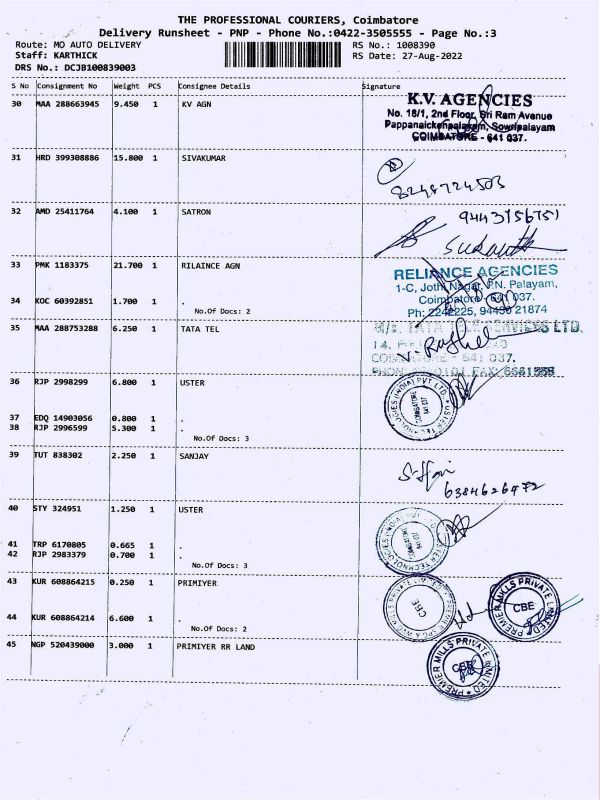 THE PROFESSIONAL COURIERS, Coimbatore
Delivery Runsheet - PNP - Phone No.:0422-3505555 - Page No.:3
Route: MO AUTO DELIVERY RS No.: 1008390
Staff: KARTHICK RS Date: 27-Aug-2022
DRS No.: DCJB100839003
S No Consignment No Weight PCS Consignee Details Signature
30 MAA 288663945 9.450 1 KV AGN
K.V. AGENCIES
No. 18/1, 2nd Floor, Sri Ram Avenue
Pappanaickenpalayam, Sowripalayam
COIMBATORE - 641 037.
31 HRD 399308886 15.800 1 SIVAKUMAR
8248724503
32 AMD 25411764 4.100 1 SATRON
9443756751
33 PMK 1183375 21.700 1 RILAINCE AGN
RELIANCE AGENCIES
1-C, Jothi Nagar, P.N. Palayam,
Coimbatore - 641 037.
Ph: 2242225, 94430 21874
34 KOC 60392851 1.700 1 .
No.Of Docs: 2
35 MAA 288753288 6.250 1 TATA TEL
M/s. TATA TELE SERVICES LTD.
COIMBATORE - 641 037.
36 RJP 2998299 6.800 1 USTER
USTER TECHNOLOGIES (INDIA) PVT LTD.
COIMBATORE
641 037
37 EDQ 14903056 0.800 1 .
38 RJP 2996599 5.300 1 .
No.Of Docs: 3
39 TUT 838302 2.250 1 SANJAY
6384626472
40 STY 324951 1.250 1 USTER
USTER TECHNOLOGIES (INDIA) PVT LTD.
COIMBATORE
641 037
41 TRP 6170805 0.665 1 .
42 RJP 2983379 0.700 1 .
No.Of Docs: 3
43 KUR 608864215 0.250 1 PRIMIYER
CBE
PREMIER MILLS PRIVATE LIMITED
CBE
44 KUR 608864214 6.600 1 .
No.Of Docs: 2
45 NGP 520439000 3.000 1 PRIMIYER RR LAND
PREMIER MILLS PRIVATE LIMITED
CBE